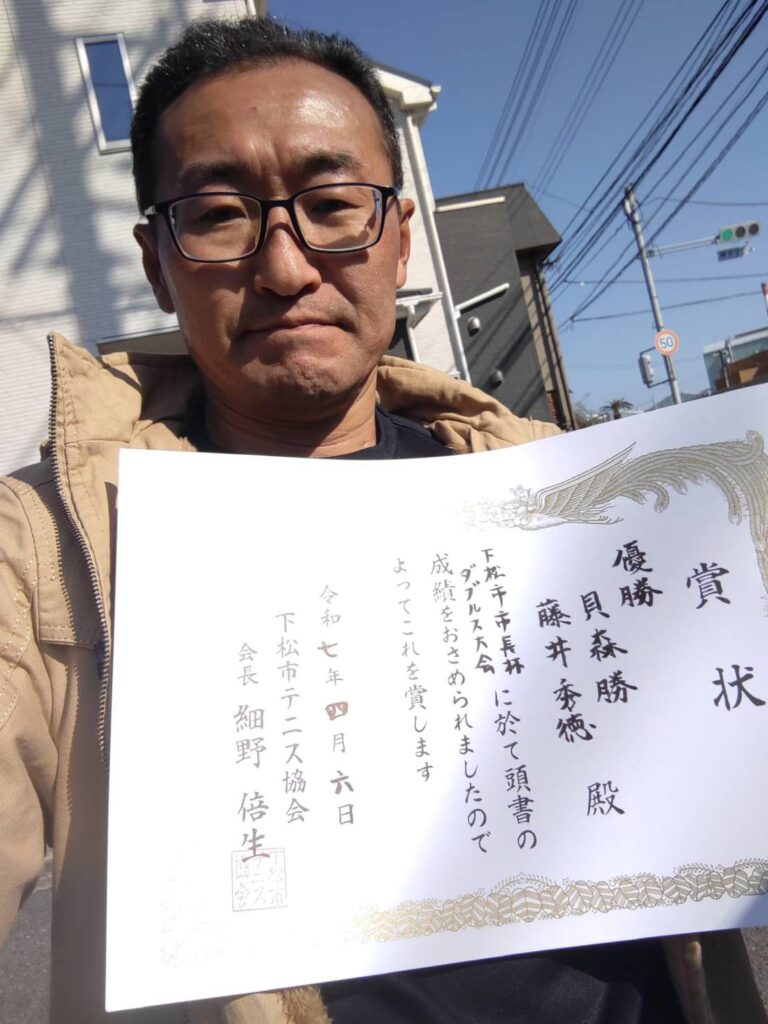 賞状
優勝
貝森勝
藤井秀徳
殿
下松市市長杯
ダブルス大会
に於て頭書の
成績をおさめられましたので
よってこれを賞します
令和七年四月六日
下松市テニス協会
会長 細野 倍生
下松市
テニス
協会
50